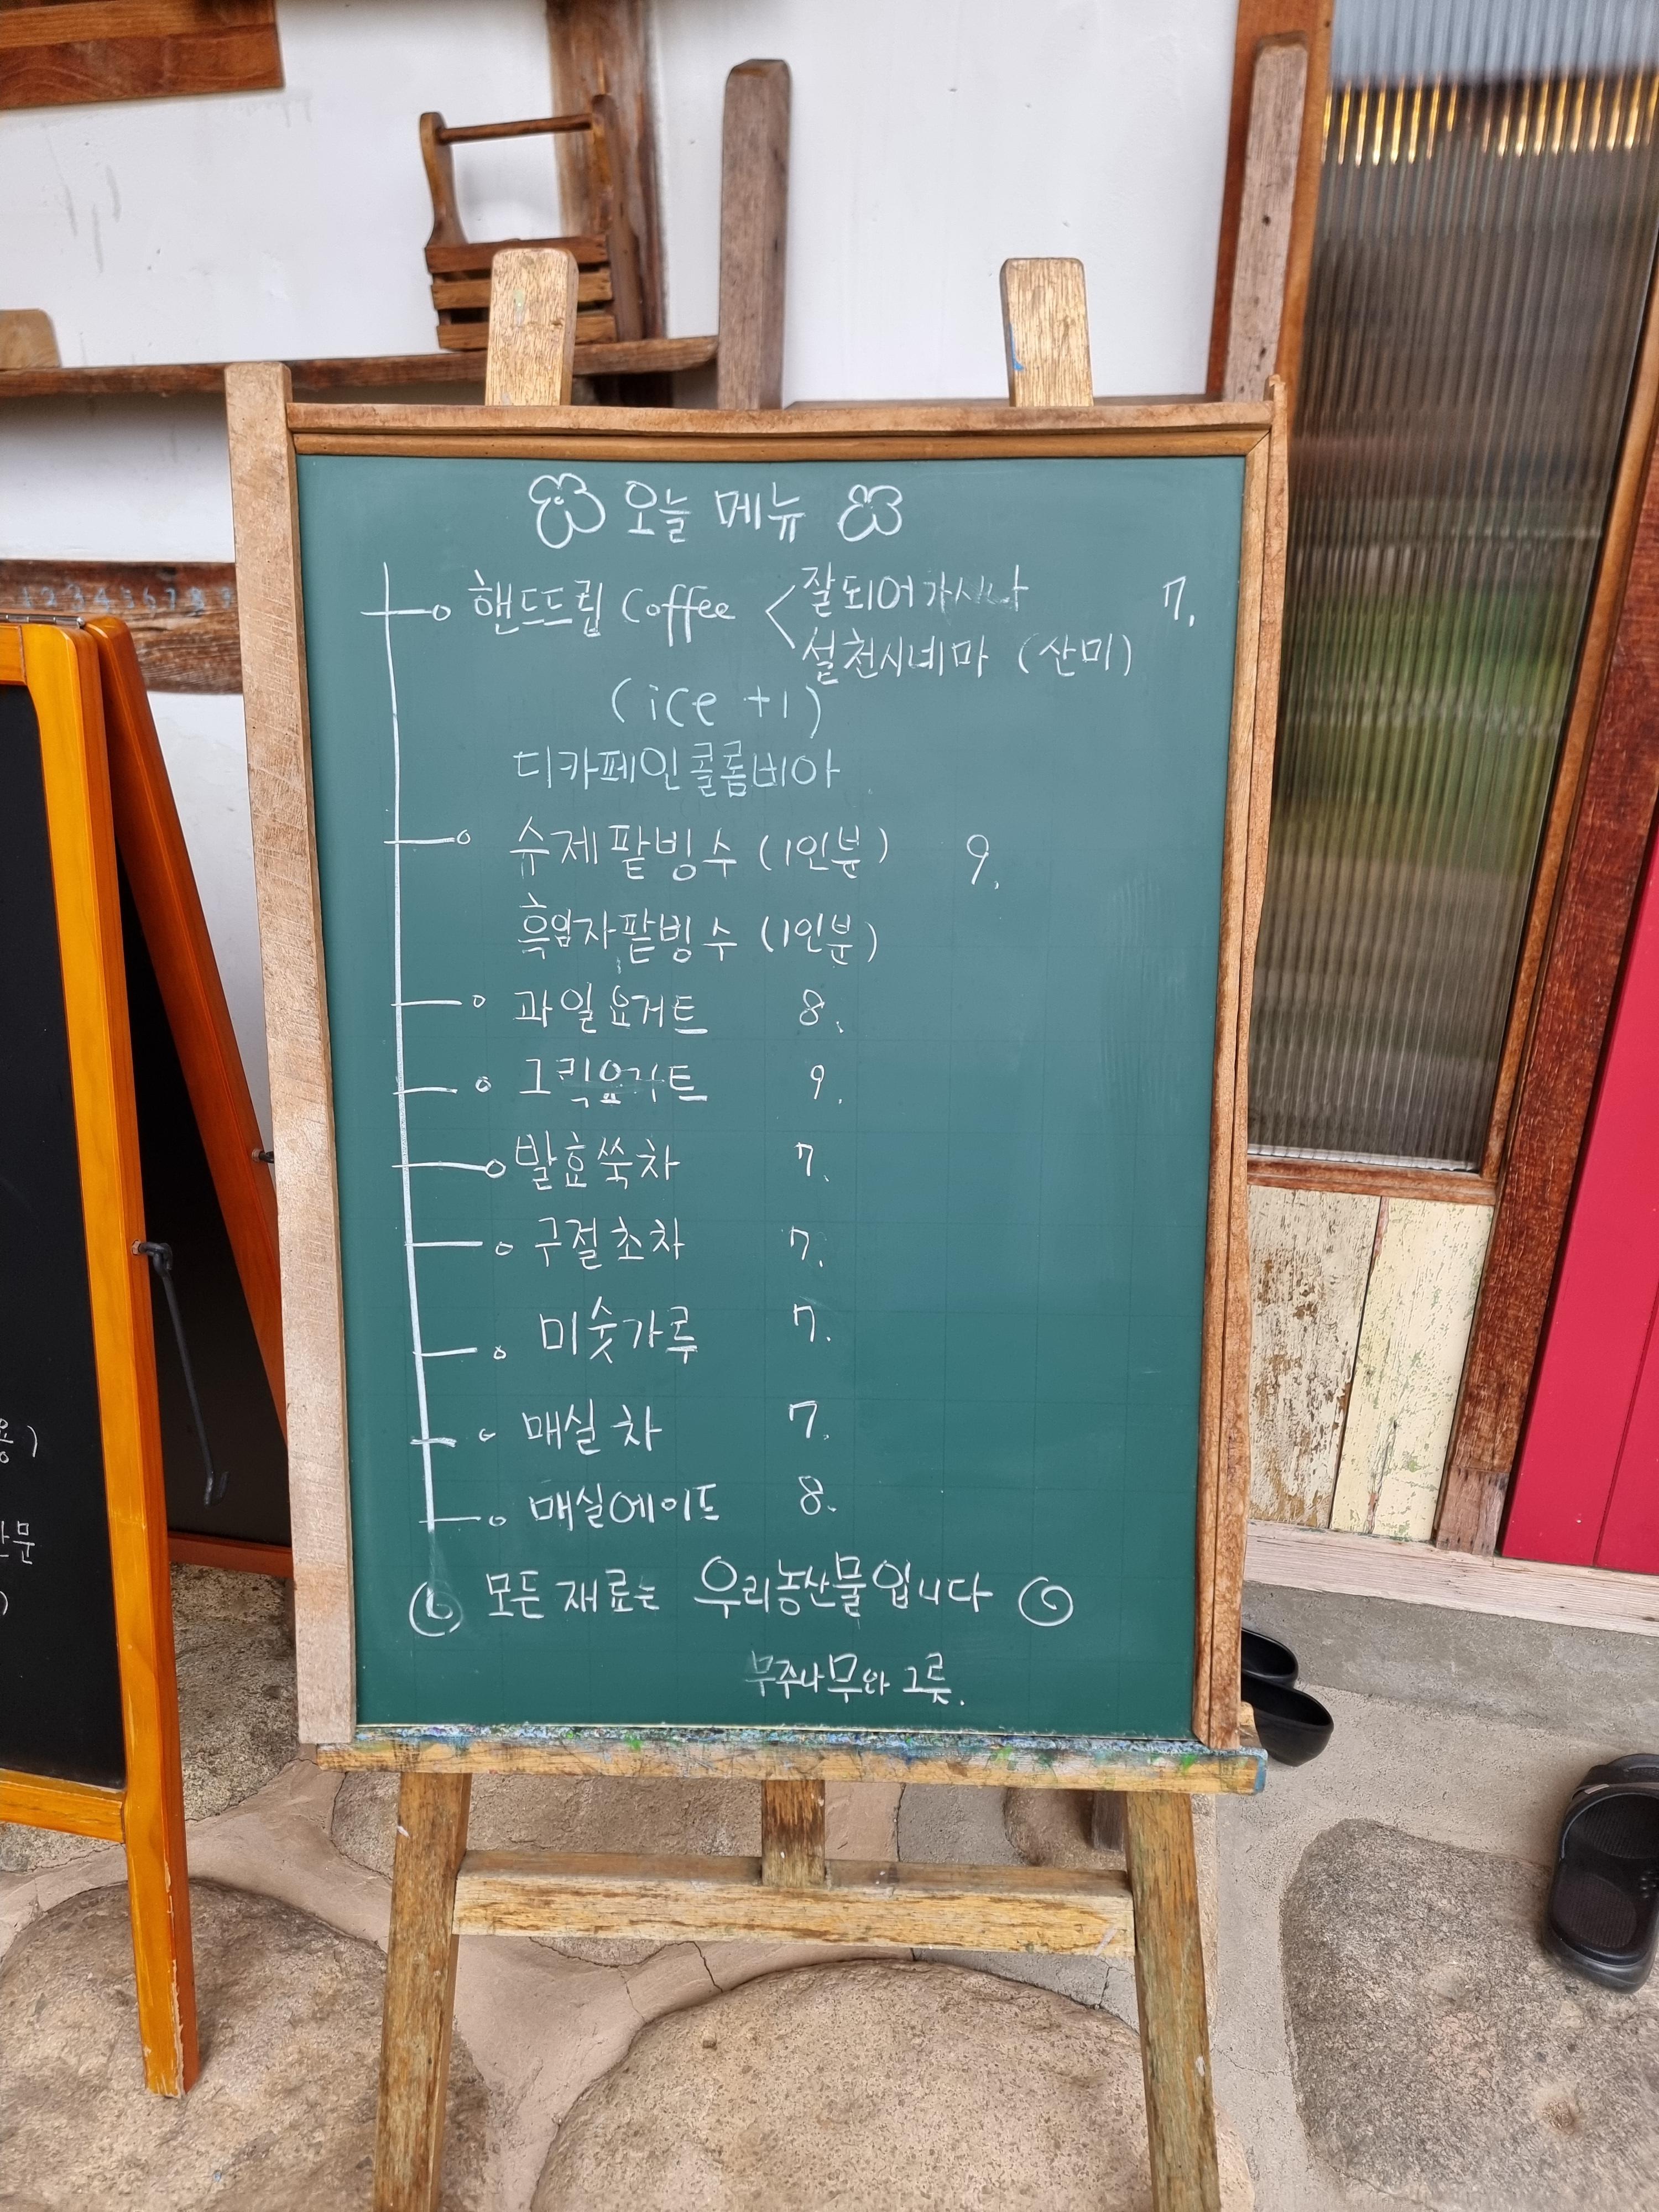 오늘 메뉴
핸드드립 Coffee < 잘되어가시나 7.
설천시네마 (산미)
(ice +1)
디카페인콜롬비아
수제팥빙수 (1인분) 9.
흑임자팥빙수 (1인분)
과일요거트 8.
그릭요거트 9.
발효쑥차 7.
구절초차 7.
미숫가루 7.
매실차 7.
매실에이드 8.
모든 재료는 우리농산물입니다
무주나무와 그릇.